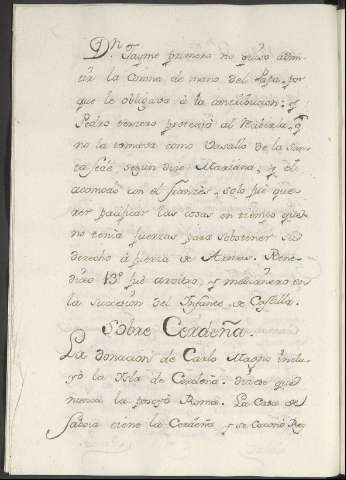 Dn. Jayme primero no quiso admi-
tir la Corona de mano del Papa, por
que le obligava à la contribucion: y
Pedro tercero protextò al recibirla, q
no la tomava como Vasallo de la San-
ta Sede según dice Mariana, y el
acomodo con el francès, solo fuè que-
rer pacificar las cosas en tiempo que
no tenia fuerzas para sobstener su
derecho à fuerza de Armas. Bene-
dicto 13º fuè arvitro, y medianero en
la succesion del Infante de Castilla.
Sobre Cerdeña.
La donacion de Carlo Magno inclu-
yò la Isla de Cerdeña. dicese que
nunca la poseyò Roma. La Casa de
Saboia tiene la Cerdeña y se Coronò Rey